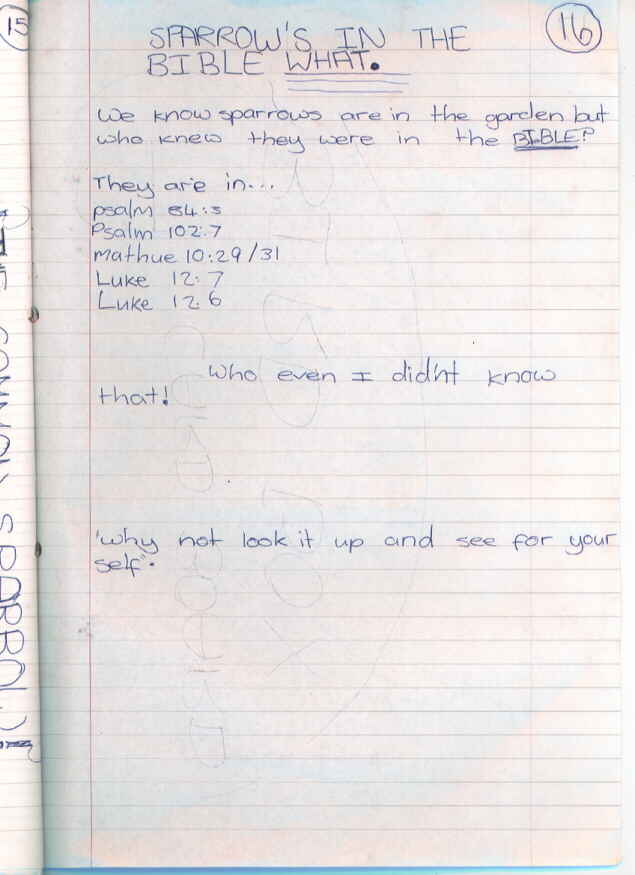 15
16
SPARROW'S IN THE
BIBLE WHAT.
We know sparrows are in the garden but
who knew they were in the BIBLE?
They are in...
psalm 84:3
Psalm 102:7
mathue 10:29/31
Luke 12:7
Luke 12:6
Who even I didn't know
that!
'why not look it up and see for your
self".
COMMON SPARROW!